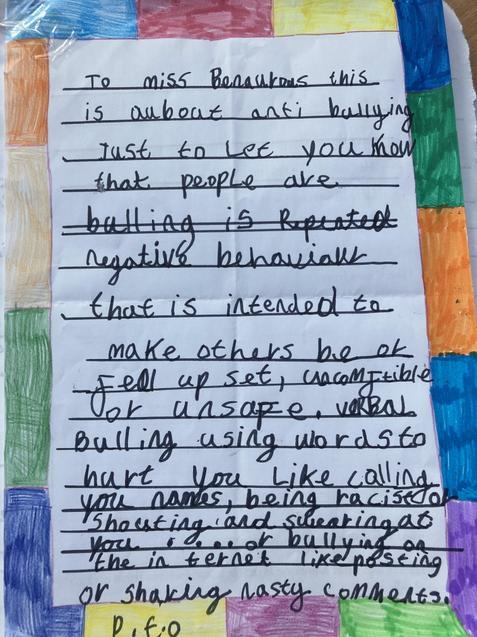 To miss Benaurous this
is aubout anti bullying
Just to let you know
that people are
bulling is Repeated
negative behaviour
that is intended to
make others be or
Fell up set, uncomftible
or unsafe, VERBAL
Bulling using words to
hurt you Like calling
you names, being racist or
shouting and swearing at
you ..... or bullying on
the in ternet like posting
or sharing nasty comments.
P.t.o